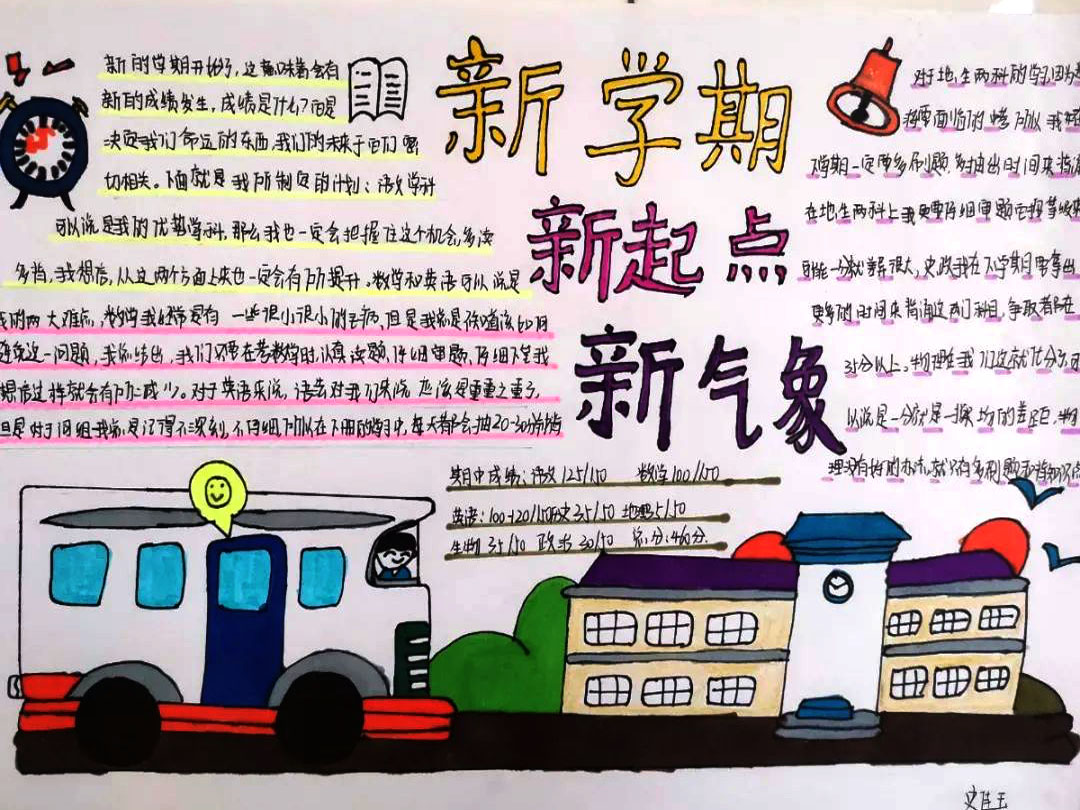 新的学期开始了，这意味着会有
新的成绩发生，成绩是什么？而是
决定我们命运的东西，我们的未来于它们息
切相关。下面就是我所制定的计划：语文学科
可以说是我的优势学科，那么我也一定会把握住这个机会，多读
多背，我相信，从这两个方面上来也一定会有所提升。数学和英语可以说是
我的两大难点，数学我经常是有一些很小很小的毛病，但是我总是
这一问题，我总结出，我们只要在考数学时，认真读题，仔细审题，
相信这样就会有所成功。对于英语来说，语法对我们来说应该是重重之重了，
但是对于词组我总是记得不深刻，不仔细，所以在下册的学习中，每天都会抽20-30分钟
新学期
新起点
新气象
对于地、生两科的学习，因为
将要面临的中考，所以我
学期一定要多刷题，多抽出时间来
在地、生两科上我更要仔细审题
可能一分就差很大，史政我在下学期要拿出
更多的时间来背诵这两门科目，争取都在
35分以上。物理在我们这就
以说是一分就是一操场的差距，
理没有好的办法，就只有多刷题
期中成绩：语文125/150 数学100/150
英语：100-120/150 历史35/50 地理35/50
生物35/50 政治30/50 总分：460分